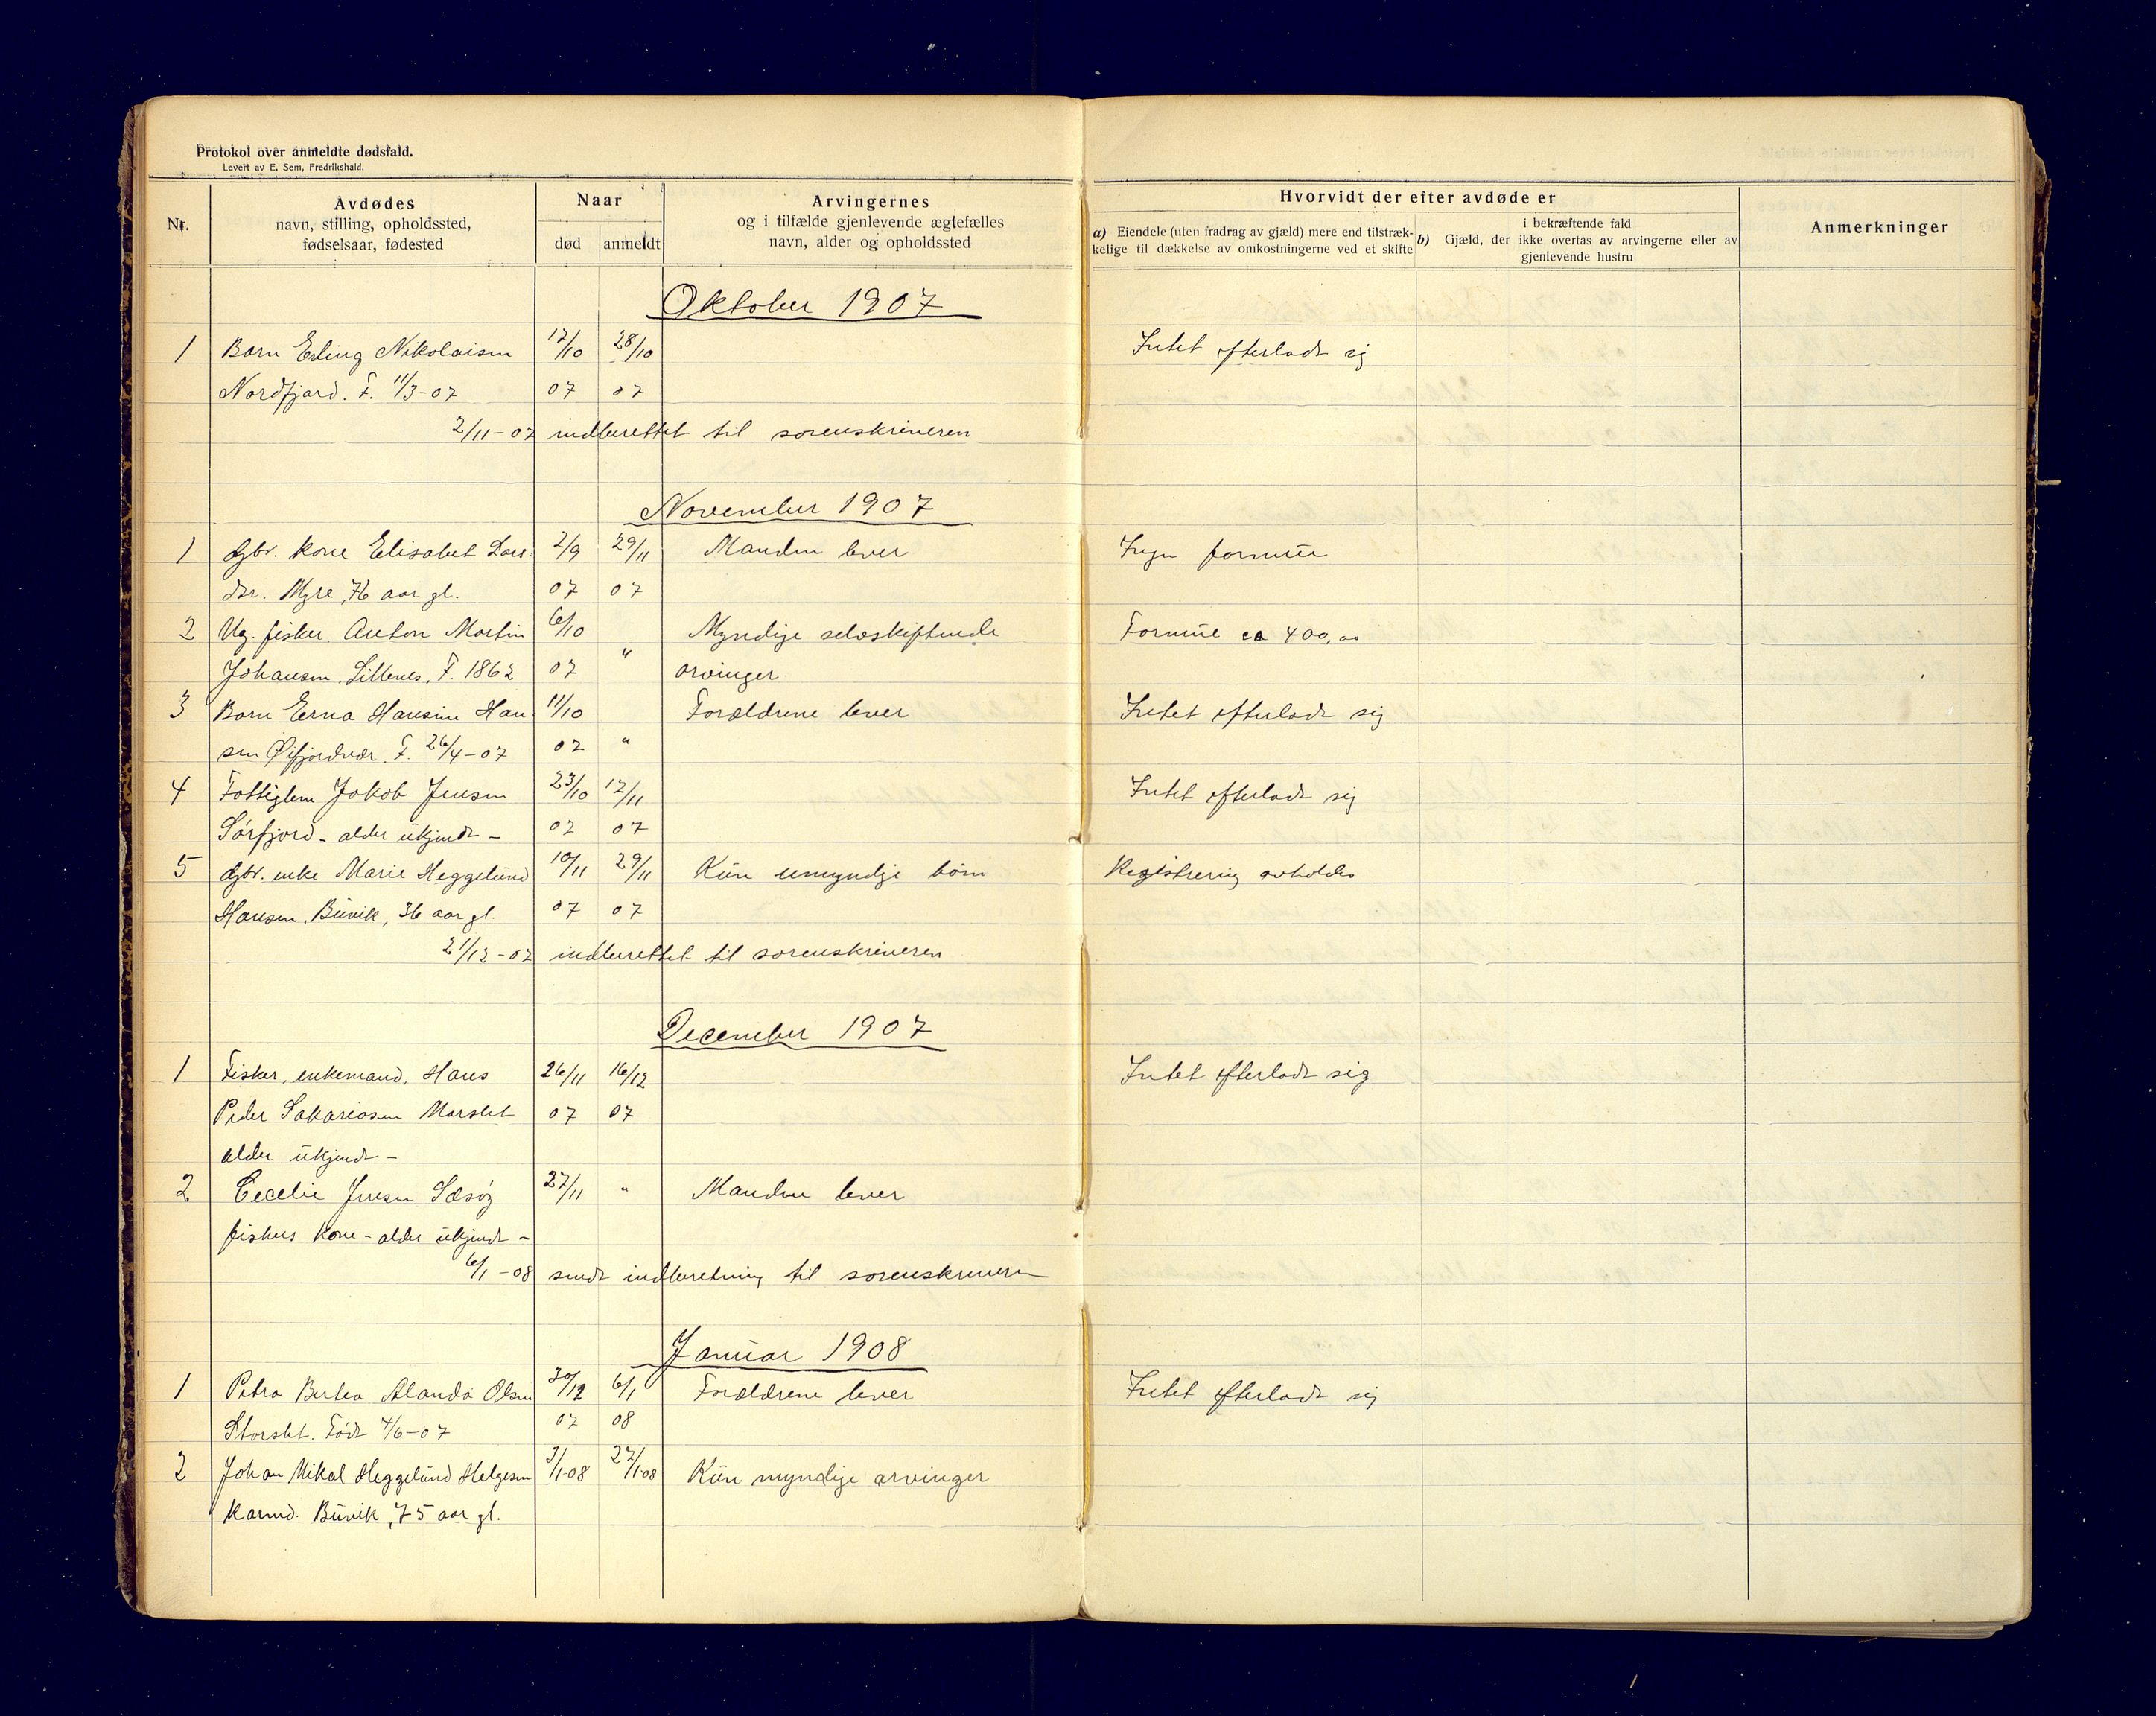 Protokol over anmeldte dødsfald.
Levert av E. Sem, Fredrikshald.
Nr.
Avdødes
navn, stilling, opholdssted,
fødselsaar, fødested
Naar
død anmeldt
Arvingernes
og i tilfælde gjenlevende ægtefælles
navn, alder og opholdssted
Hvorvidt der efter avdøde er
a) Eiendele (uten fradrag av gjæld) mere end tilstræk-
kelige til dækkelse av omkostningerne ved et skifte
i bekræftende fald
b) Gjæld, der ikke overtas av arvingerne eller av
gjenlevende hustru
Anmerkninger
Oktober 1907
1 Barn Erling Nikolaisen 17/10 28/10 Intet efterladt sig
Nordfjord. F. 11/3-07 07 07
2/11-07 indberettet til sorenskriveren
November 1907
1 Gbr. kone Elisabet Lars 2/9 29/11 Manden lever Ingen formue
dtr. Myre, 76 aar gl. 07 07
2 Ug. fisker Anton Martin 6/10 Myndige selvskiftende Formue ca 400,00
Johansen, F. 1862 07 " arvinger
3 Barn Erna Hansine Han 11/10 Forældrene lever Intet efterladt sig
sen Øifjordvær. F. 26/4-07 07 "
4 Fattiglem Jakob Jensen 23/10 12/11 Intet efterladt sig
Sørfjord - alder ukjendt - 07 07
5 Gbr. enke Marie Heggelund 10/11 29/11 Kun umyndige børn Registrering avholdes
Hansen, Buvik, 36 aar gl. 07 07
21/12-07 indberettet til sorenskriveren
December 1907
1 Fisker, enkemand, Hans 26/11 16/12 Intet efterladt sig
Peder Sakariasen 07 07
alder ukjendt -
2 Cecelie Jensen 27/11 " Manden lever
fiskers kone - alder ukjendt -
6/1-08 sendt indberetning til sorenskriveren
Januar 1908
1 Petra Bertea Alanda Olsen 30/12 6/1 Forældrene lever Intet efterladt sig
Storslet. Født 4/6-07 07 08
2 Johan Mikal Heggelund Helgesen 3/1-08 27/1-08 Kun myndige arvinger
Buvik, 75 aar gl.